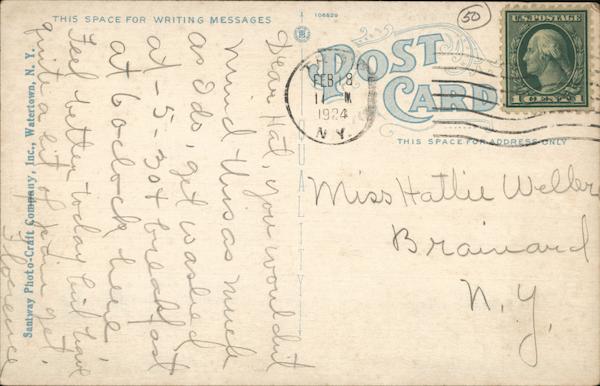 THIS SPACE FOR WRITING MESSAGES
106629
50
POST
CARD
THIS SPACE FOR ADDRESS ONLY
U.S. POSTAGE
1 CENTS 1
FEB 18
M
1924
N.Y.
QUALITY
Santway Photo-Craft Company, Inc., Watertown, N. Y.
Dear Hat, you wouldn't
mind this as much
as I do, get washed
at - 5-30 + breakfast
at 6 o clock here
Feel better today but have
quite a bit of pain yet.
Florence
Miss Hattie Weller
Brainard
N.Y.